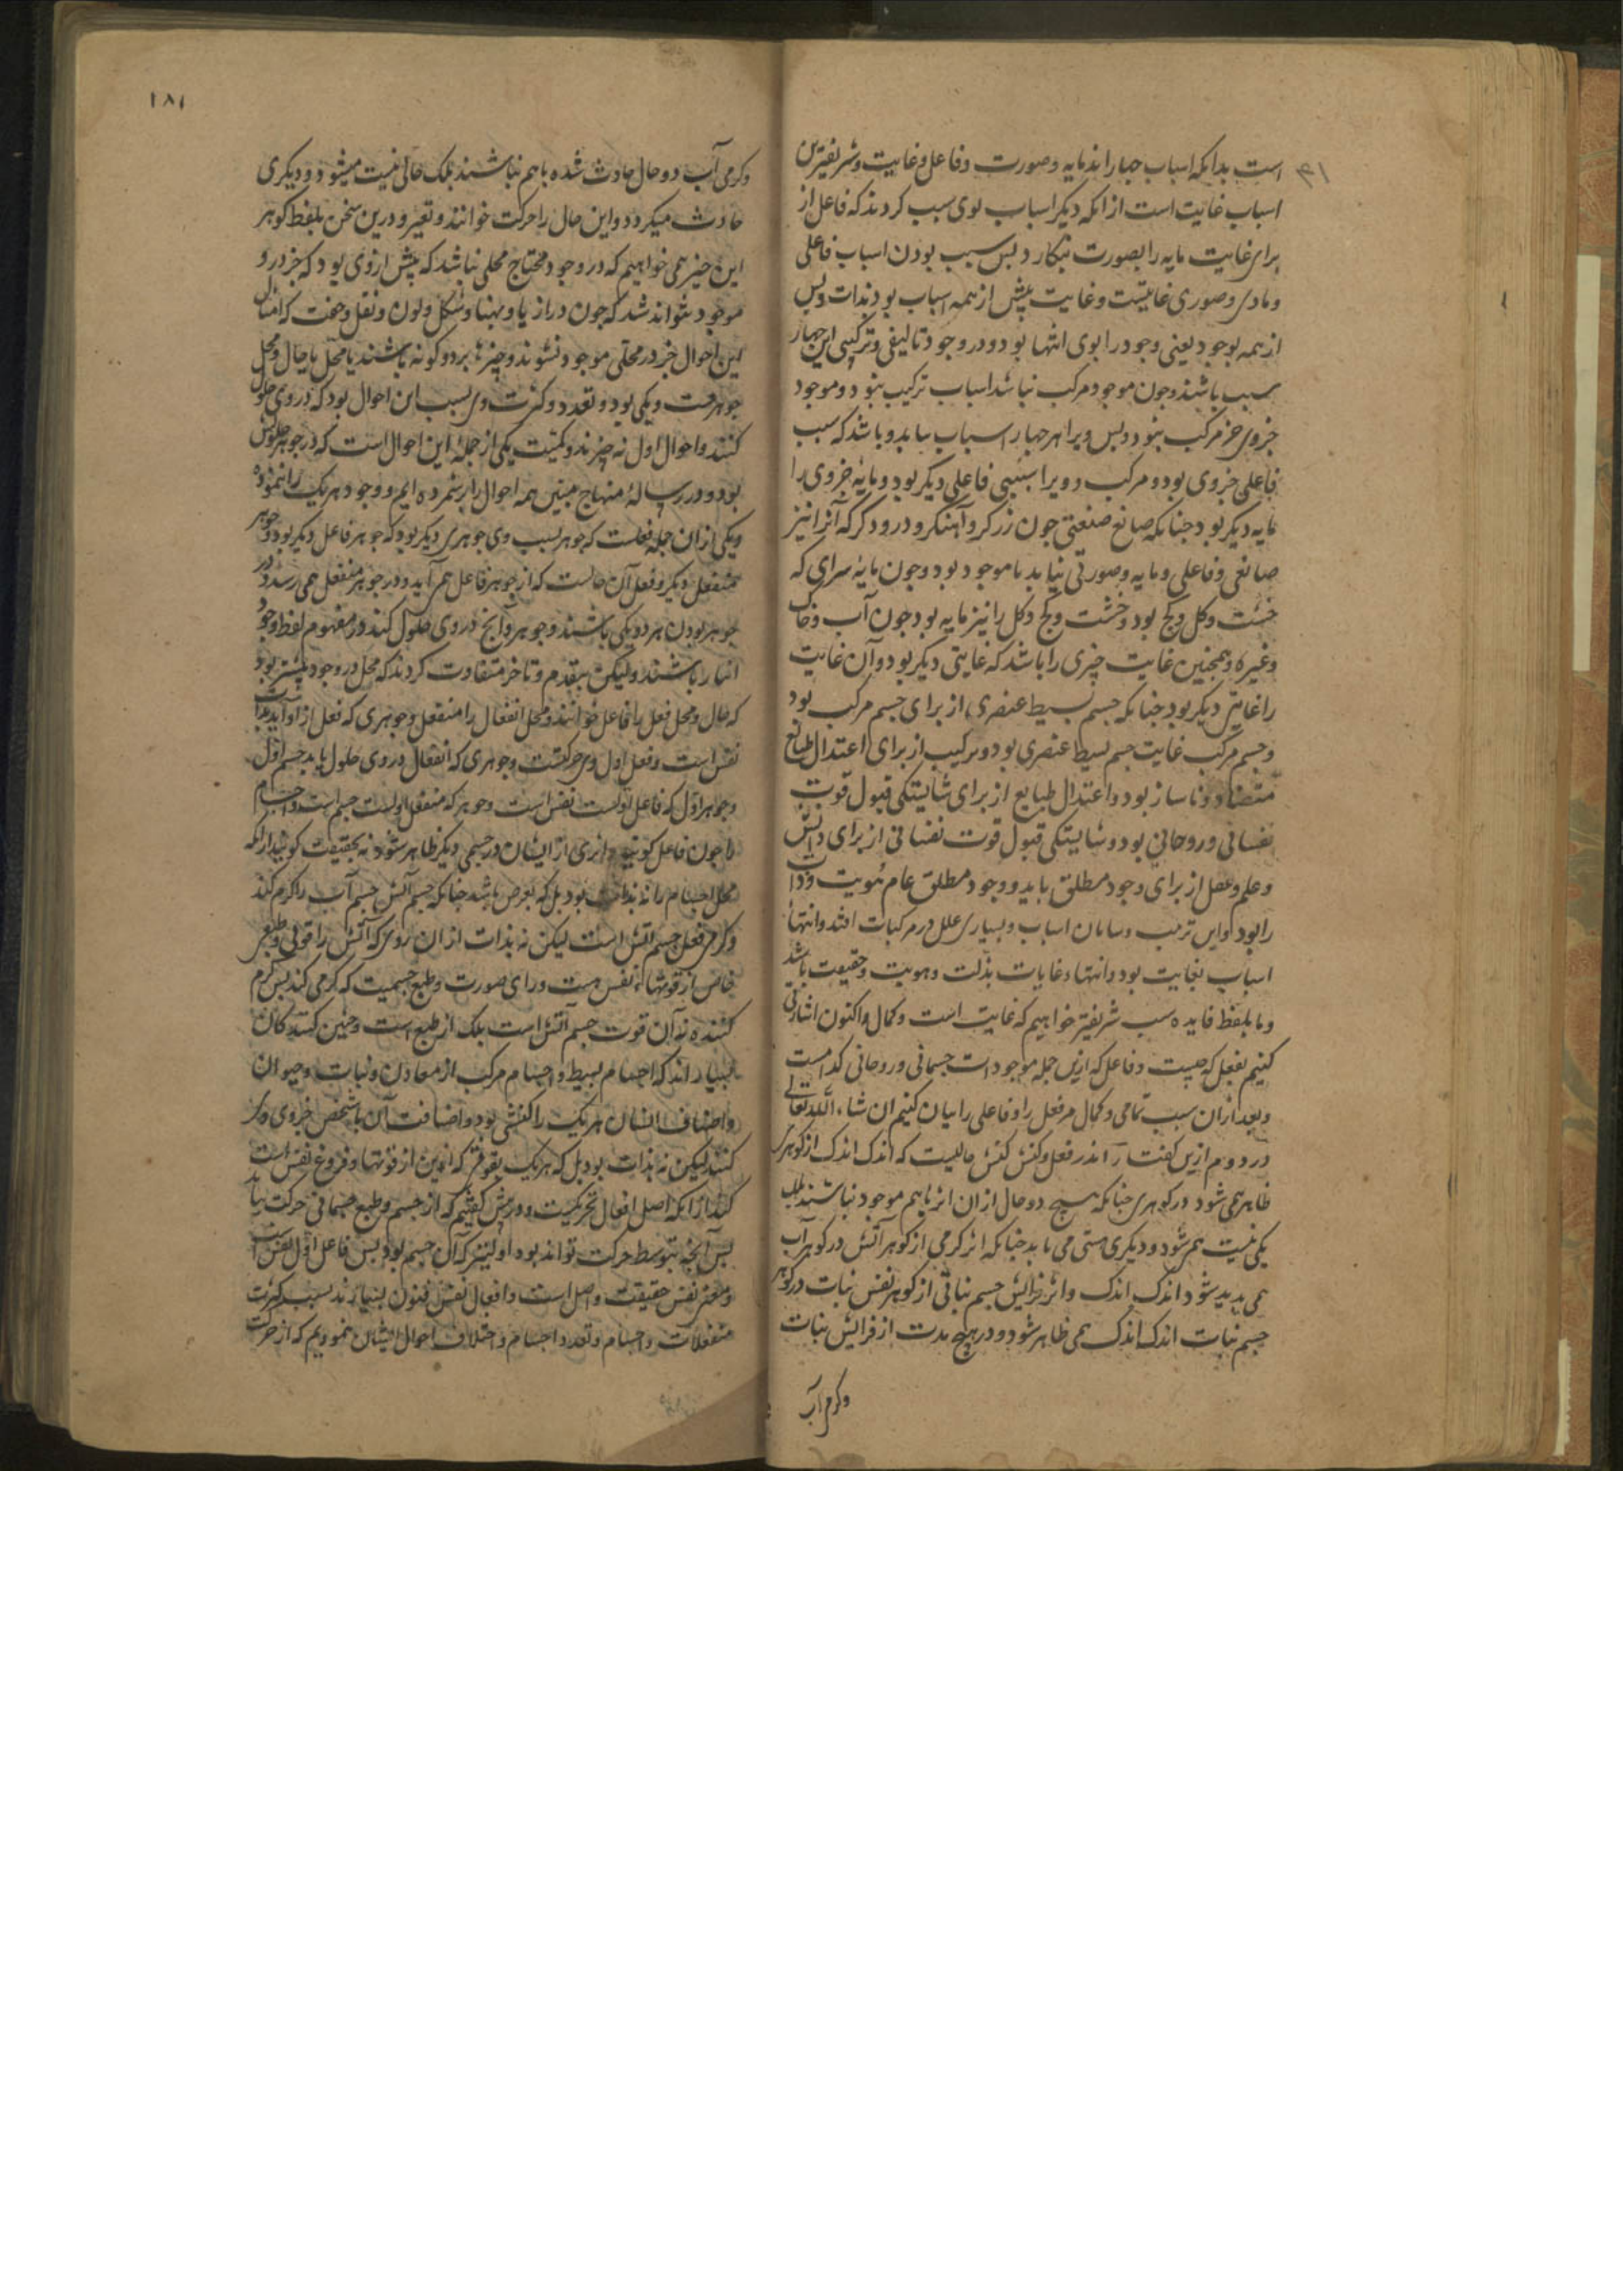 است بدانکه اسباب چهاراند مایه و صورت و فاعل و غایت و شریفترین
اسباب غایت است از انکه دیگر اسباب بوی سبب کردند که فاعل از
برای غایت مایه را بصورت بنکارد بس سبب بودن اسباب فاعلی
و مادی و صوری غایتست و غایت پیش از همه اسباب بود بذات و بس
از همه بوجود یعنی وجود را بوی انتها بود و در وجود تالیفی و ترکیبی این چهار
سبب باشند و جون موجود مرکب نباشد اسباب ترکیب نبود و موجود
جزوی جز مرکب نبود و بس ویرا هر چهار اسباب بباید و باشد که سبب
فاعلی جزوی بود و مرکب و ویرا سببی فاعلی دیگر بود و مایهٔ جزوی را
مایه دیگر بود جنانکه صانع صنعتی جون زرکر و آهنکر و درودکر که آنرا نیز
صانعی و فاعلی و مایه و صورتی بباید تا موجود بود و جون مایه سرای که
خشت و کل و کج بود و خشت و کج و کل را نیز مایه بود جون آب و خاک
و غیره و همجنین غایت چیزی را باشد که غایتی دیگر بود و آن غایت
را غایتی دیگر بود جنانکه جسم بسیط عنصری از برای جسم مرکب بود
و جسم مرکب غایت جسم بسیط عنصری بود و ترکیب از برای اعتدال طبایع
متضاد و ناساز بود و اعتدال طبایع از برای شایستگی قبول قوت
نفسانی و روحانی بود و شایستگی قبول قوت نفسانی از برای دانش
و علم و عقل از برای وجود مطلق باید و وجود مطلق عام هویت و ذات
را بود و این ترتیب و سامان اسباب و بسیاری علل در مرکبات افتد و انتهاء
اسباب بغایت بود و انتهاء غایات بذات و هویت و حقیقت باشد
و ما بلفظ فایده سبب شریفتر خواهیم که غایت است و کمال و اکنون اشارتی
کنیم بفعل که چیست و فاعل که ازین جمله موجودات جسمانی و روحانی کدامست
و بعد از ان سبب تمامی و کمال مر فعل را و فاعلی را بیان کنیم ان شاء الله تعالی
در دوم ازین کفتار اندر فعل و کنش کنش حالیست که اندک اندک از کوهری
ظاهر همی شود در کوهری جنانکه هیچ دو حال از ان اثر باهم موجود نباشند بلک
یکی نیست همی شود و دیگری هستی می یابد جنانکه اثر کرمی از کوهر آتش در کوهر آب
همی پدید شود اندک اندک و اثر فزایش جسم نباتی از کوهر نفس نبات در کوهر
جسم نبات اندک اندک همی ظاهر شود و در هیچ مدت از فزایش نبات
و کرمی آب
۱۸۱
و کرمی آب دو حال حادث شده باهم نباشند بلک حالی نیست میشود و دیگری
حادث میکردد و این حال را حرکت خوانند و تغیر و درین سخن بلفظ کوهر
این چیز همی خواهیم که در وجود محتاج محلی نباشد که پیش از وی بود که جز در و
موجود نتواند شد که جون درازیا و پهنا و شکل و لون و ثقل و خفت که امثال
این احوال جز در محلی موجود نشوند و چیزها بر دو کونه باشند یا محل یا حال و محل
جوهرست و یکی بود و تعدد و کثرت وی بسبب این احوال بود که در وی حلول
کنند و احوال اول نه چیزند و کمیت یکی از جملهٔ این احوال است که در جوهر حلولش
بود و در رسالهٔ منهاج مبین همه احوال را برشمرده ایم و وجود هر یک را نموده
و یکی از ان جمله فعلست که جوهر بسبب وی جوهری دیگر بود که جوهر فاعل دیگر بود و جوهر
منفعل دیگر و فعل آن حالست که از جوهر فاعل همی آید و در جوهر منفعل همی رسد و در
جوهر بودن هر دو یکی باشند و جوهر و آنج در وی حلول کند در مفهوم لفظ وجود
انباز باشند ولیکن بتقدم و تاخر متفاوت کردند که محل در وجود پیشتر بود
که حال و محل فعل را فاعل خوانند و محل انفعال را منفعل و جوهری که فعل از او آید بذات
نفس است و فعل اول وی حرکتست و جوهری که انفعال در وی حلول یابد جسم اول
و جوهر اول که فاعل اولست نفس است و جوهر که منفعل اولست جسم است و اجسام
را جون فاعل کویند و اثری از ایشان در جسمی دیگر ظاهر شود نه بحقیقت کویند از انکه
محل اجسام را نه بذات بود بل که بعرض باشد جنانکه جسم آتش جسم آب را کرم کند
و کرمی فعل جسم آتش است لیکن نه بذات از ان روی که آتش را قوتی و طبعی
خاص از قوتهاء نفس هست ورای صورت و طبع جسمیت که کرمی کند بس کرم
کننده نه آن قوت جسم آتش است بلک از طبع است و جنین کنندکان
بسیاراند که اجسام بسیط و اجسام مرکب از معادن و نبات و حیوان
و اصناف انسان هر یک را کنشی بود و اضافت آن باشخص جزوی وی
کنند لیکن نه بذات بود بل که هر یک بقوتی کنند این از قوتها و فروع نفس است
کنند از انکه اصل افعال تحریکست و در پیش کفتیم که از جسم و طبع جسمانی حرکت نیاید
بس آنچه بتوسط حرکت تواند بود اولیتر که آن جسم بود بس فاعل اول نفس است
و معنی نفس حقیقت و اصل است و افعال نفس فنون بسیارند بسبب کثرت
منفعلات و اجسام و تعدد اجسام و اختلاف احوال ایشان نمودیم که از حرکت